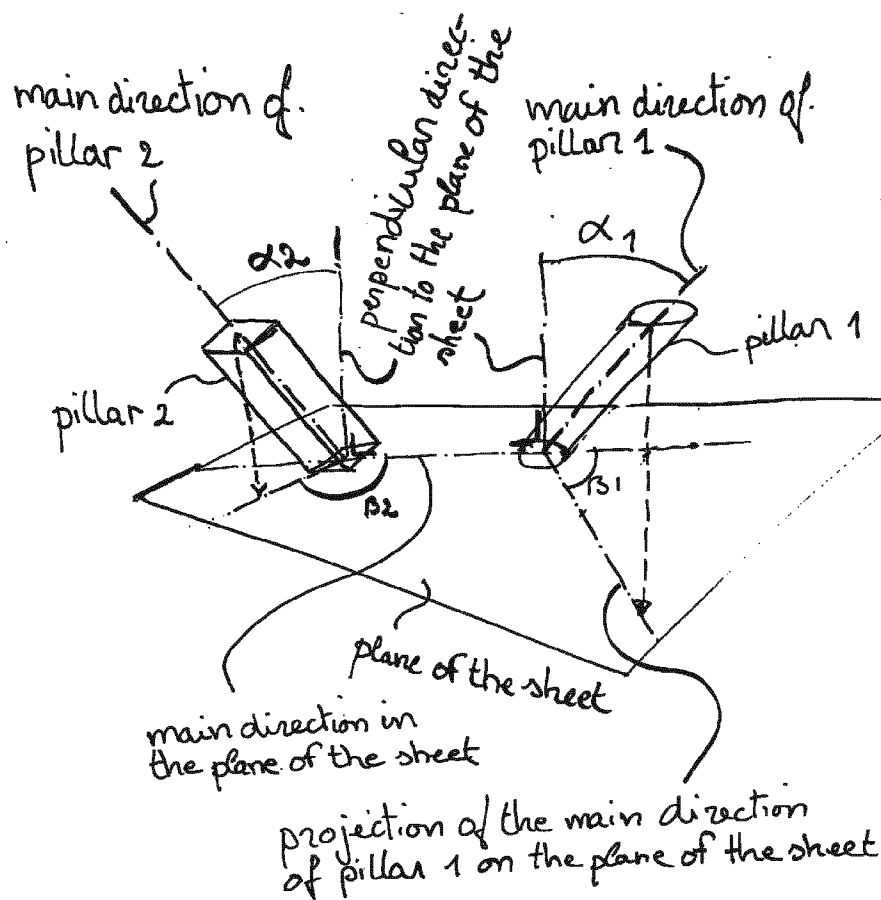 main direction of.
pillar 2
perpendicular direc-
tion to the plane of the
sheet
main direction of.
pillar 1
α2
α1
pillar 1
pillar 2
β2
β1
plane of the sheet
main direction in
the plane of the sheet
projection of the main direction
of pillar 1 on the plane of the sheet